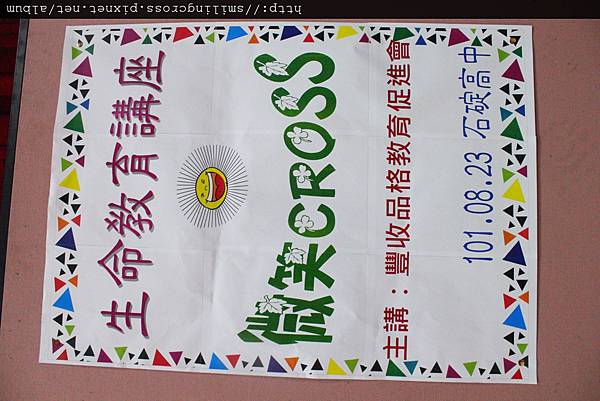 http://smilingcross.pixnet.net/album
生命教育講座
微笑CROSS
主講：豐收品格教育促進會
101.08.23 石碇高中